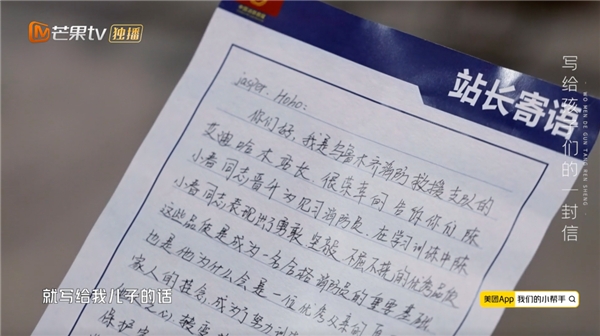 芒果tv 独播
站长寄语
写给孩子们的一封信
WO MEN DE GUN TANG REN SHENG
jasper. Hoho:
你们好，我是乌鲁木齐消防救援支队的
艾迪哈木站长，很荣幸的告诉你们陈
小春同志晋升为见习消防员，在学习训练中陈
小春同志表现出了勇敢、坚毅、不屈不挠的优秀品质
这些品质是成为一名合格消防员的重要基础
也是他为什么会是一位优秀父亲的
家人的挂念，成为了努力训
保护
就写给我儿子的话
美团App 我们的小帮手